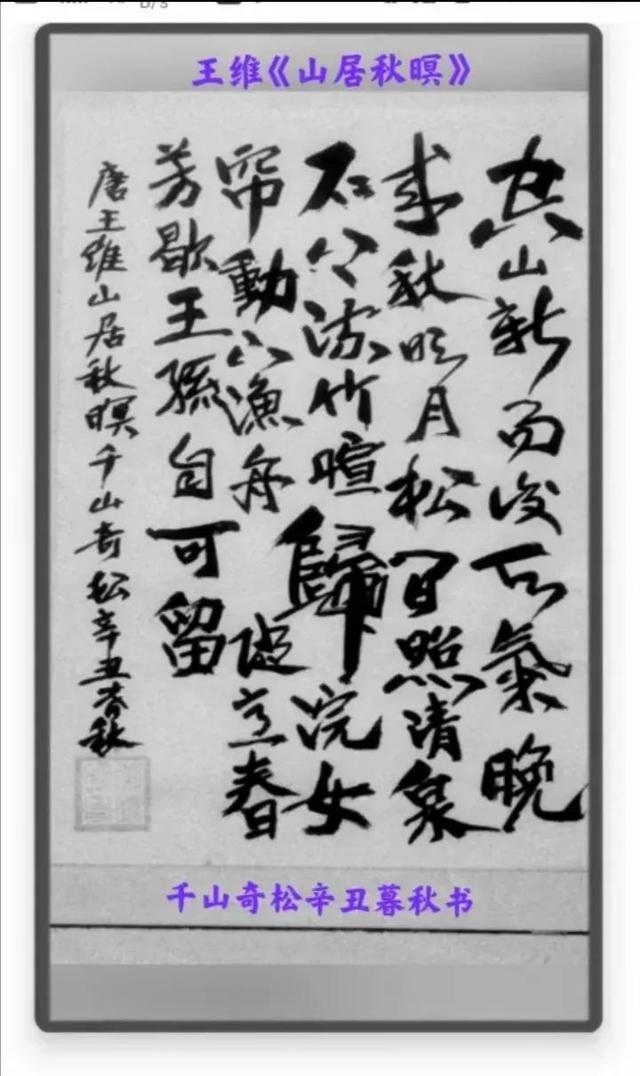 B/s
王维《山居秋暝》
空山新雨後天氣晚
來秋明月松間照清泉
石上流竹喧歸浣女
帘動下漁舟隨意春
芳歇王孫自可留
唐王維山居秋暝千山奇松辛丑暮秋
千山奇松辛丑暮秋书